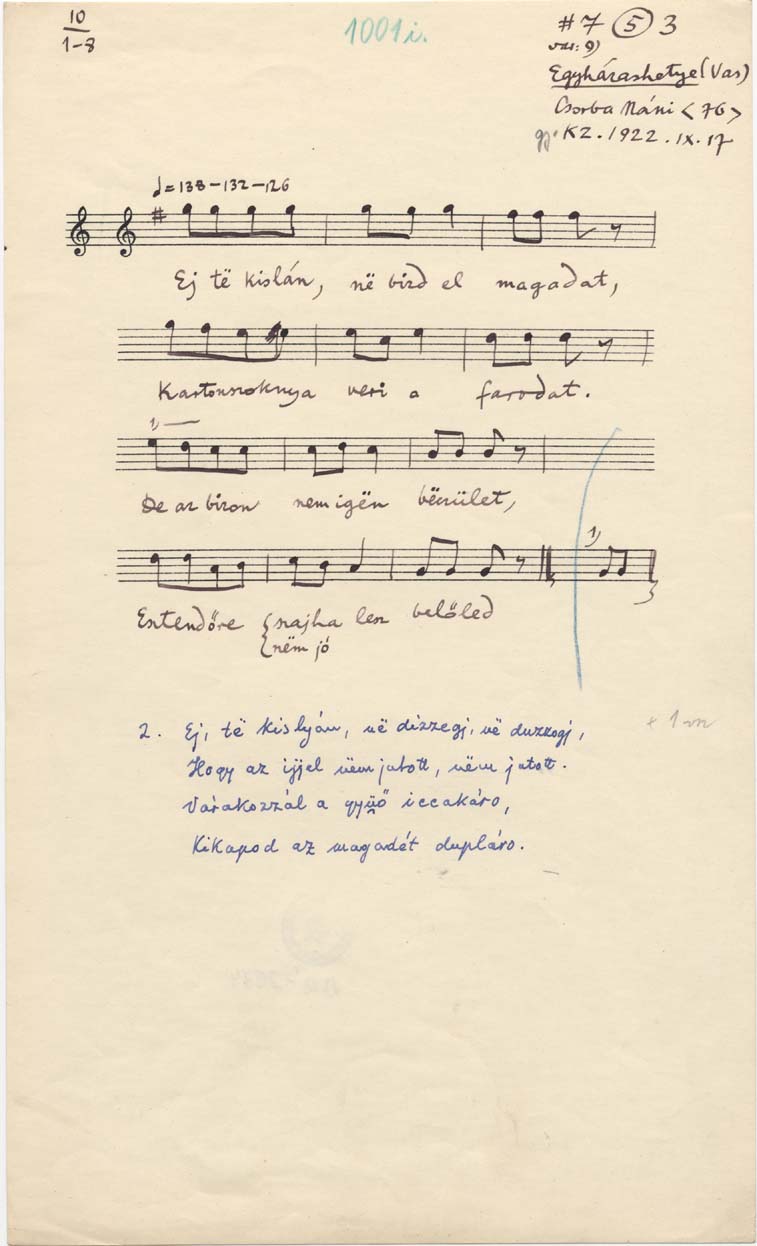 10
1-8
1001 i.
#7 (5) 3
var: 9)
Egyházashetye (Vas)
Csorba Náni <76>
gy. KZ. 1922. IX. 17
♩=138-132-126
Ej, të kislán, në bizd el magadat,
Kartonszoknya veri a farodat.
1)
De az bizon nem igën bëcsület,
1)
Esztendőre {szajha lesz belőled
{nëm jó
2. Ej, të kislyán, në dizzegj, në duzzogj,
Hogy az ijjel nëm jutott, nëm jutott.
Várakozzál a gyüő iccakáro,
Kikapod az magadét dupláro.